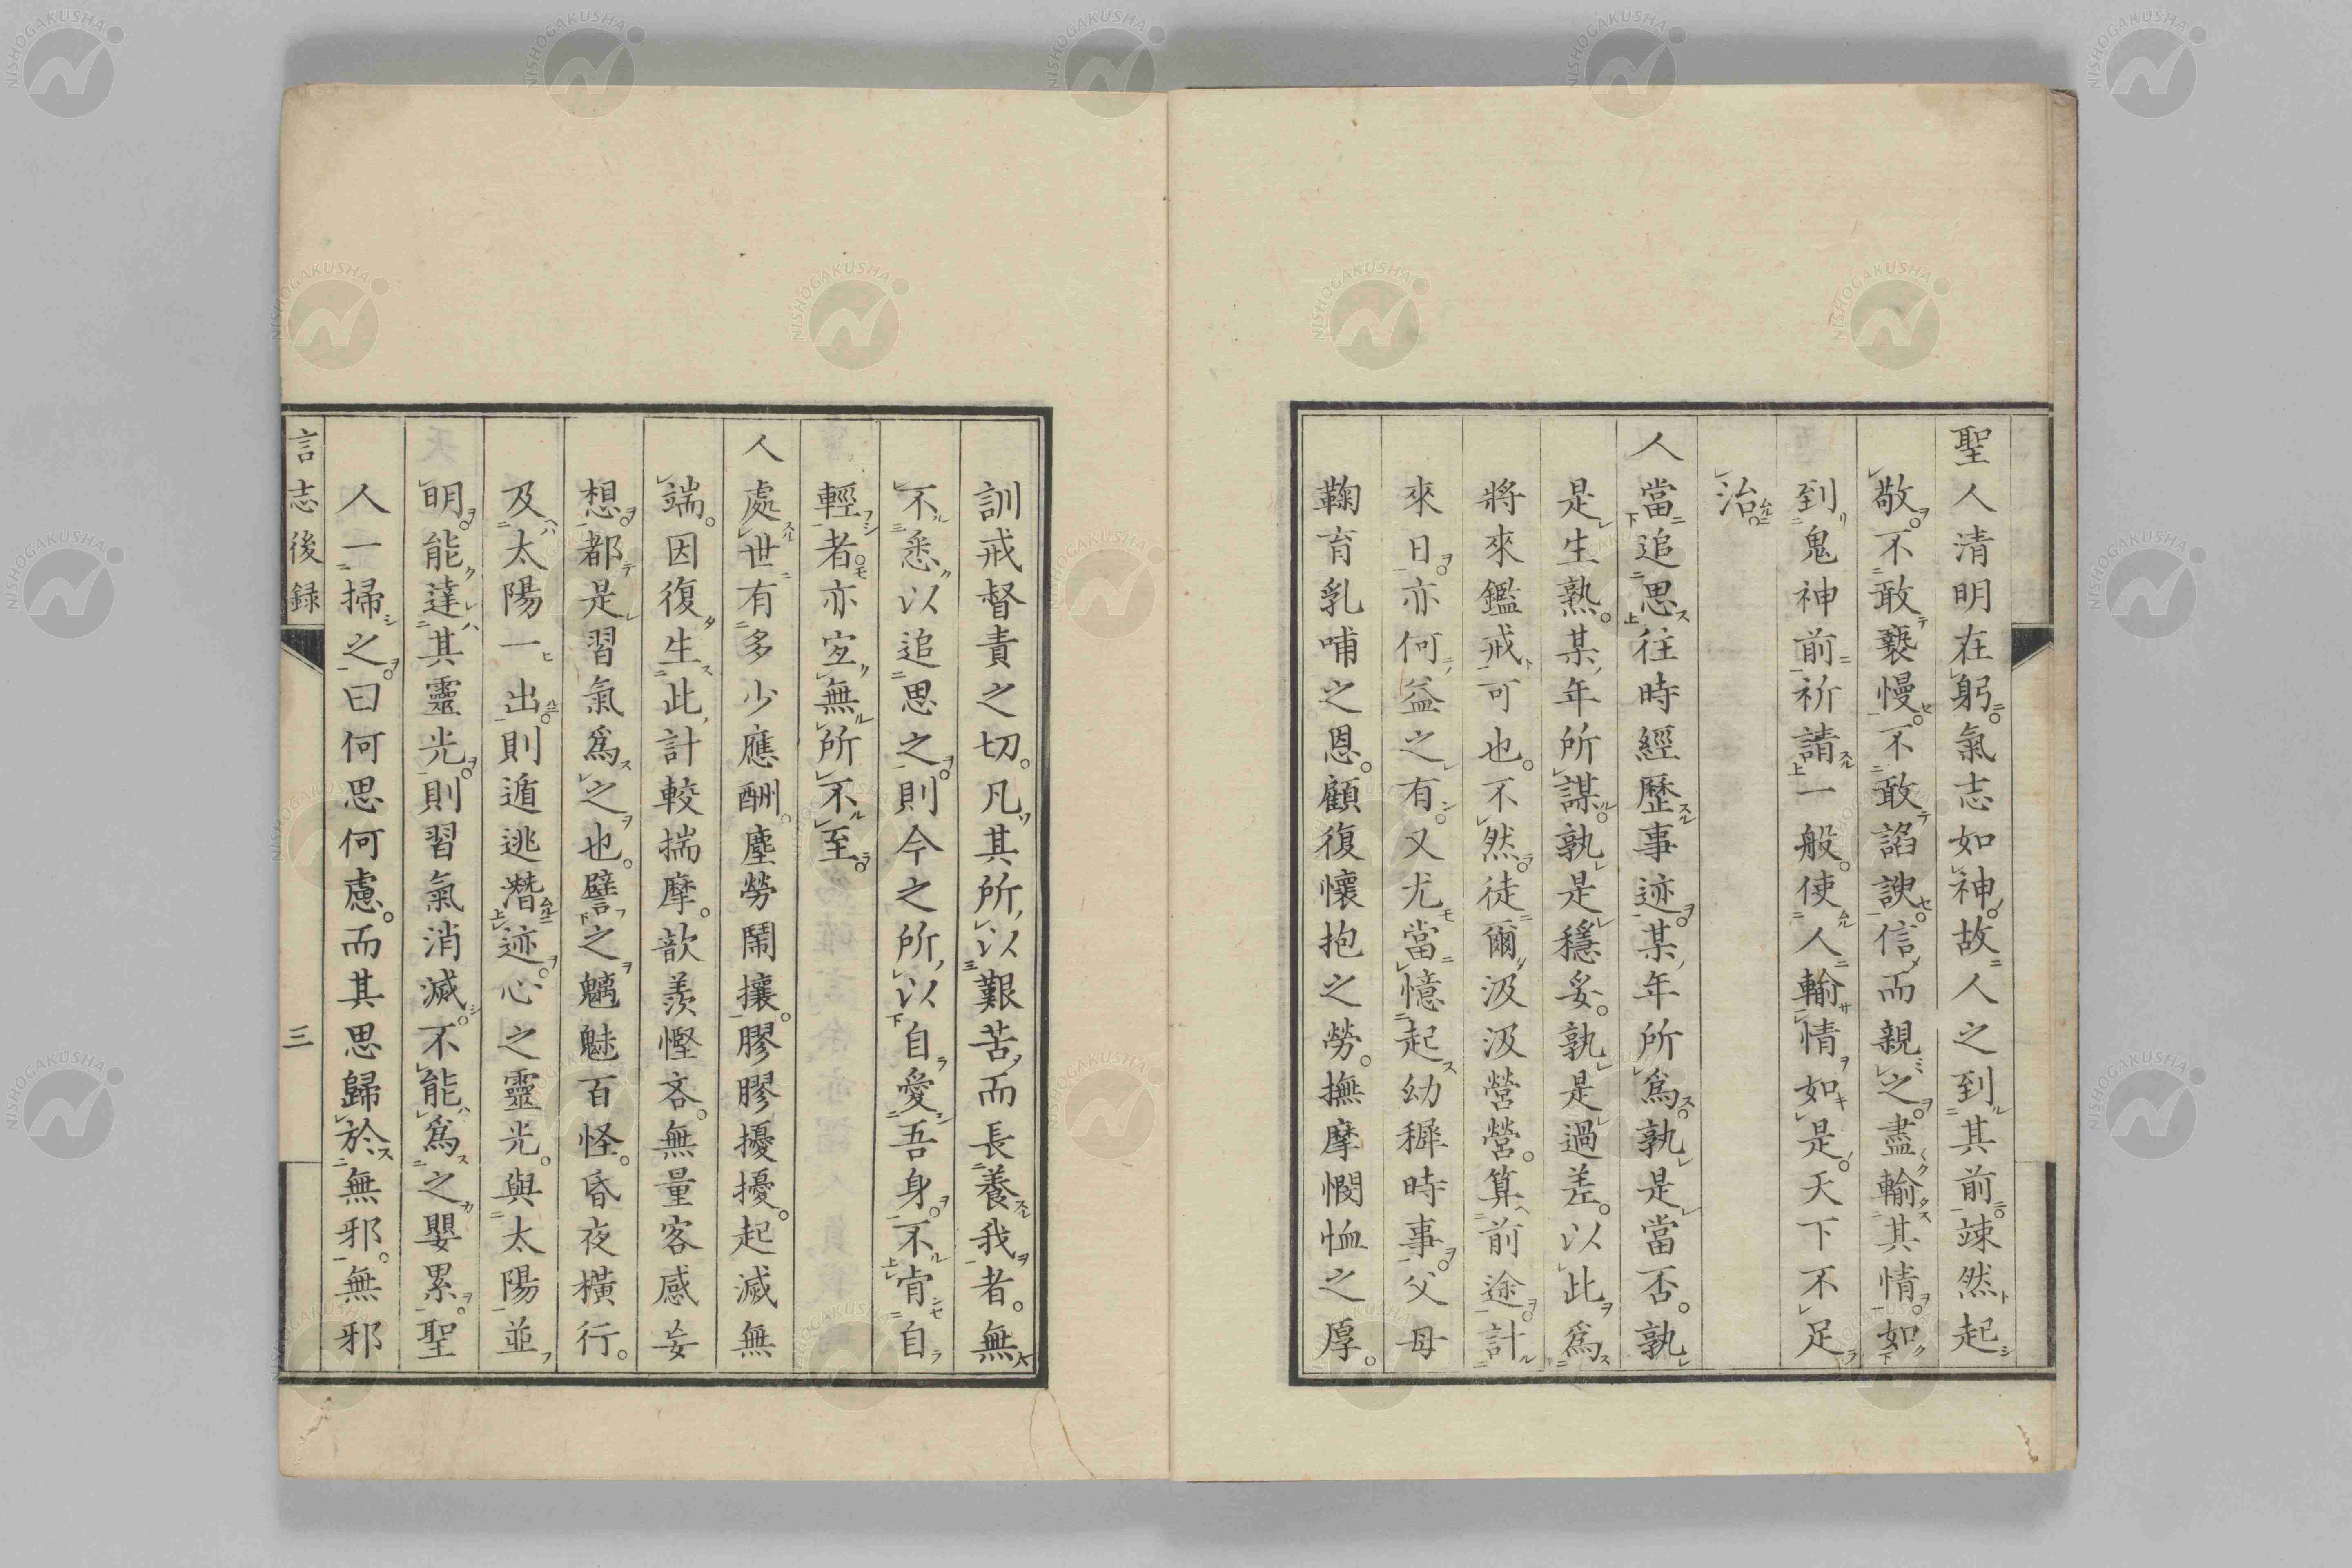 聖人清明在躬。氣志如神。故人之到其前。竦然起
敬。不敢褻慢。不敢諂諛。信而親之。盡輸其情。如
到鬼神前祈請一般。使人輸情如是。天下不足
治。
人當追思往時經歷事迹。某年所爲。孰是當否。孰
是生熟。某年所謀。孰是穩妥。孰是過差。以此爲
將來鑑戒可也。不然。徒爾汲汲營營。算前途。計
來日。亦何益之有。又尤當憶起幼穉時事。父母
鞠育乳哺之恩。顧復懷抱之勞。撫摩憫恤之厚。
訓戒督責之切。凡其所以艱苦而長養我者。無
不悉以追思之。則今之所以自愛吾身。不肯自
輕者。亦宜無所不至。
人處世有多少應酬。塵勞鬧攘。膠膠擾擾。起滅無
端。因復生此計較揣摩。歆羨慳吝。無量客感妄
想。都是習氣爲之也。譬之魑魅百怪。昏夜橫行。
及太陽一出。則遁逃潛迹。心之靈光。與太陽並
明。能達其靈光。則習氣消滅。不能爲之嬰累。聖
人一掃之。曰何思何慮。而其思歸於無邪。無邪
言志後録
三
NISHOGAKUSHA